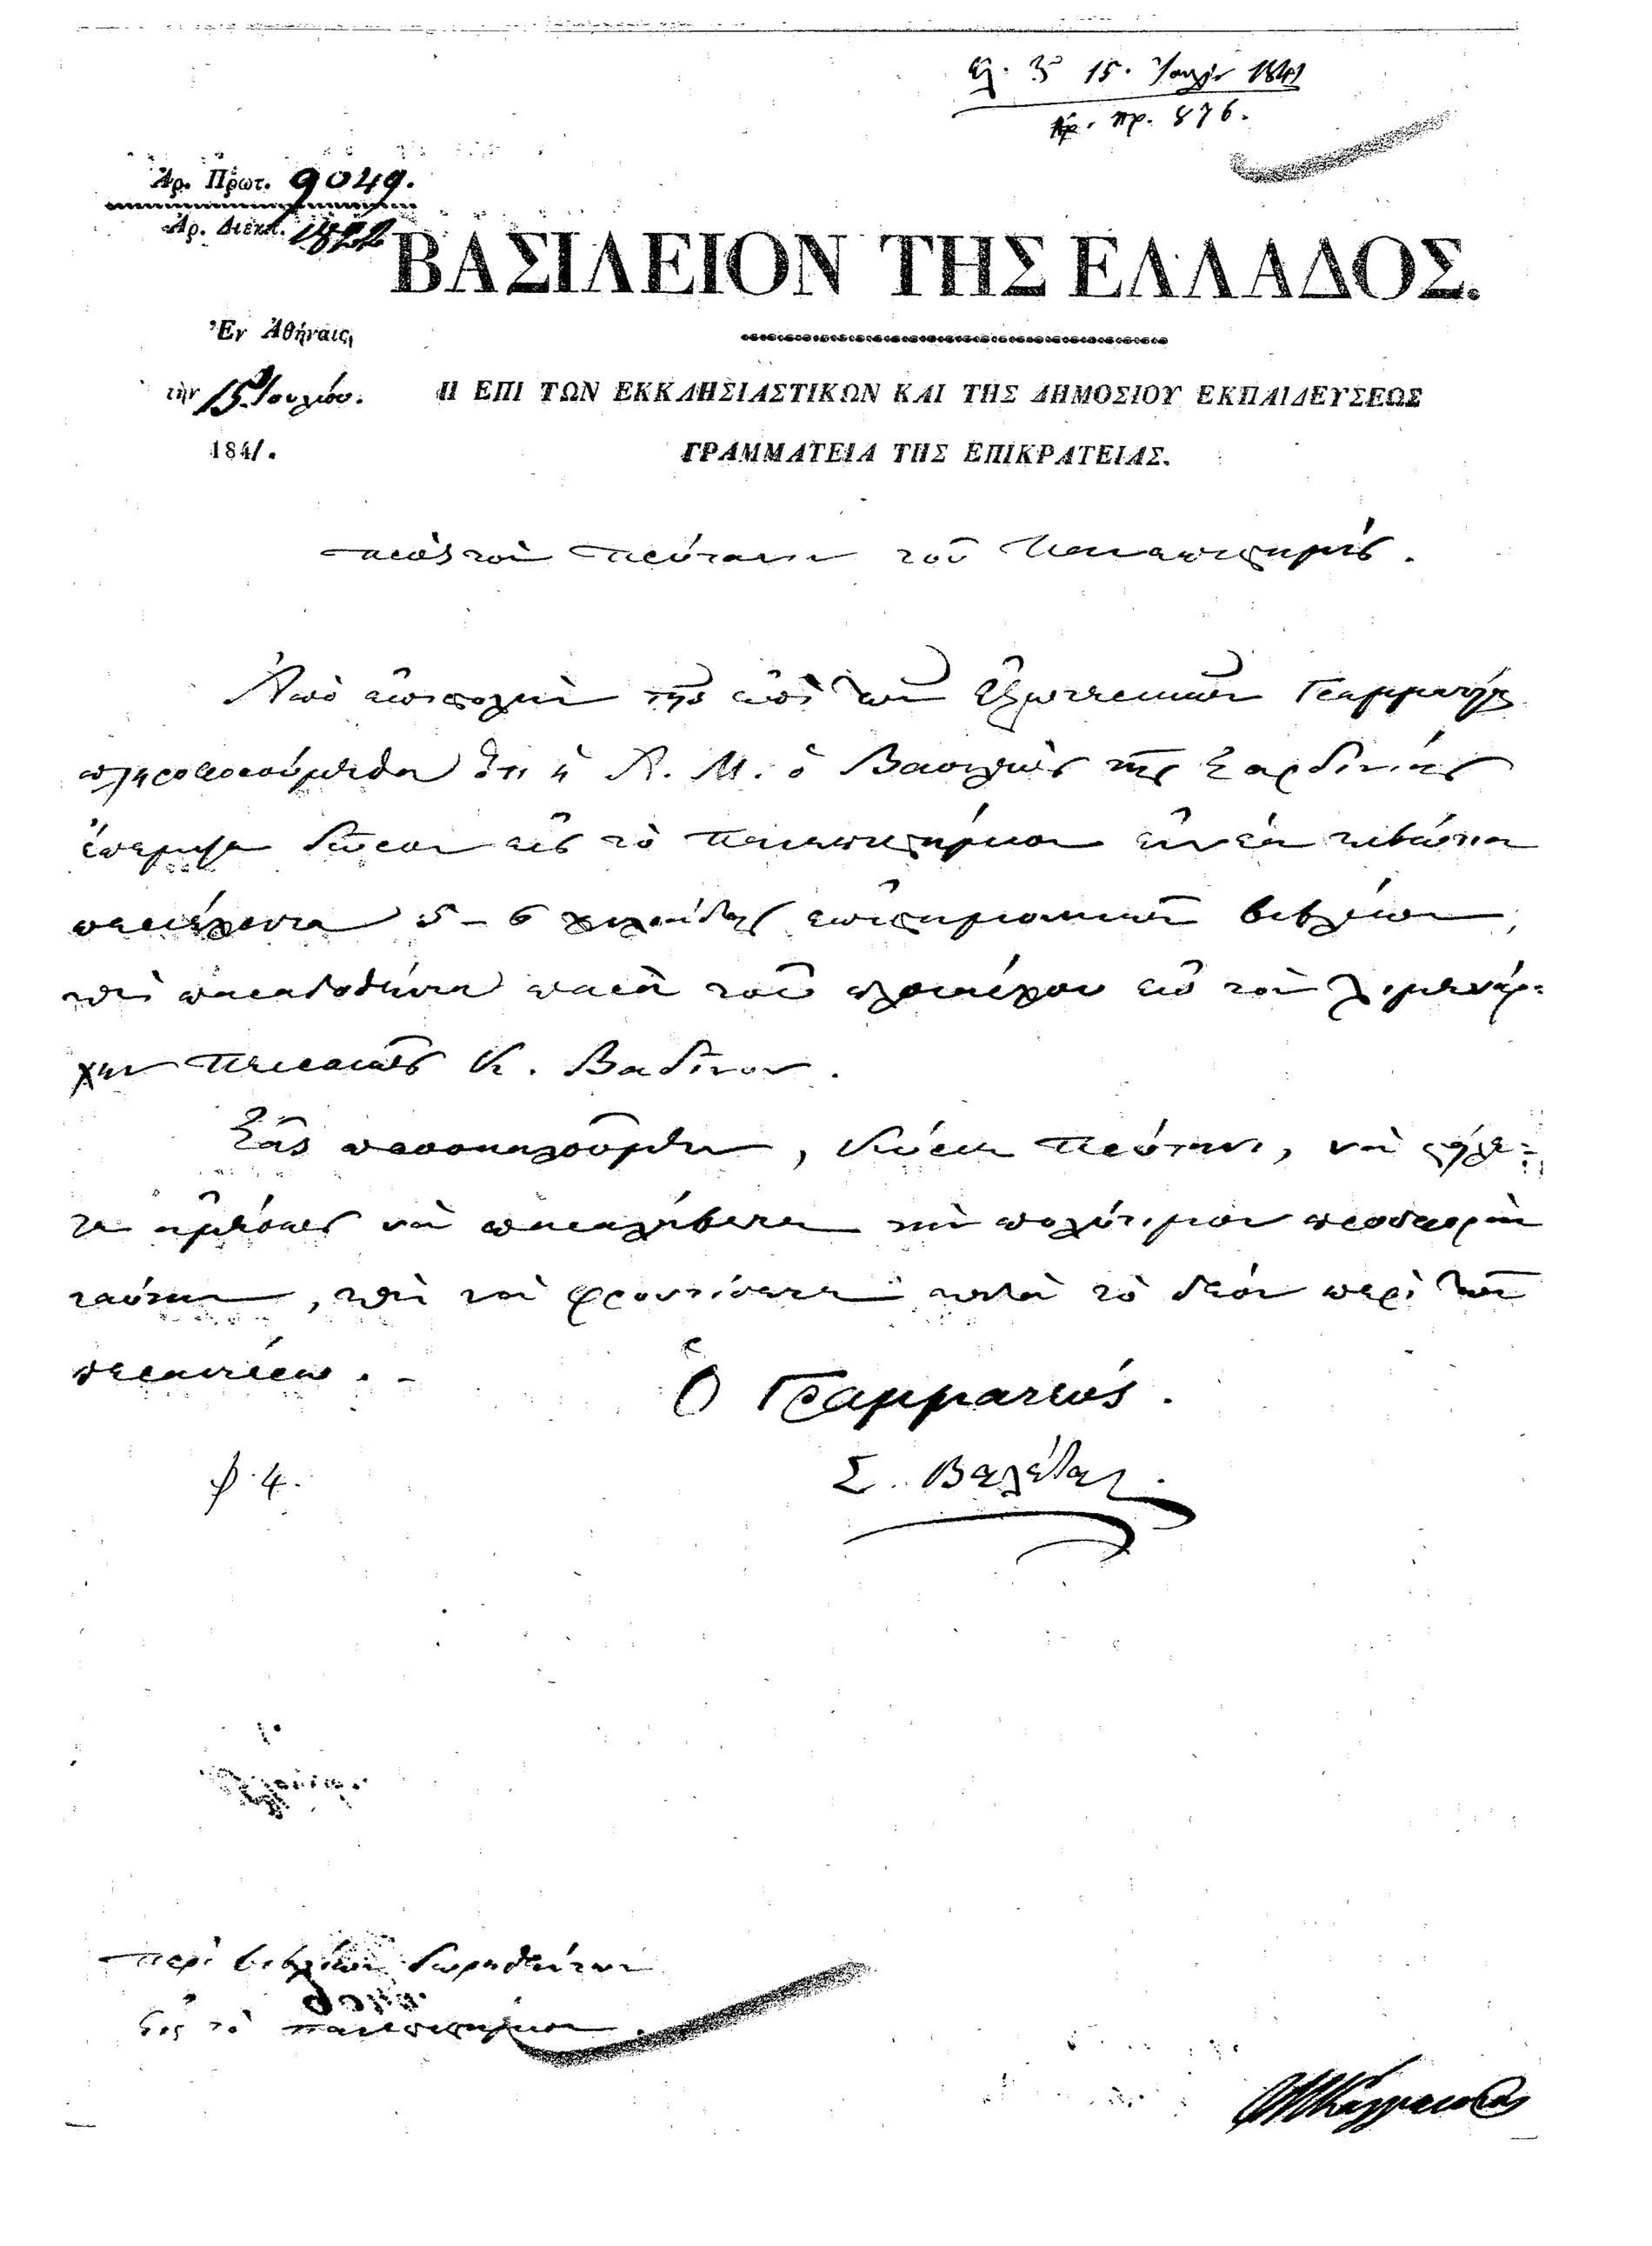 15. Ἰουλίου 1841
Ἀρ. πρ. 876.
Ἀρ. Πρωτ. 9049.
Ἀρ. Διεκπ. 1822
ΒΑΣΙΛΕΙΟΝ ΤΗΣ ΕΛΛΑΔΟΣ.
Ἐν Ἀθήναις,
τὴν 15 Ἰουλίου.
1841.
Η ΕΠΙ ΤΩΝ ΕΚΚΛΗΣΙΑΣΤΙΚΩΝ ΚΑΙ ΤΗΣ ΔΗΜΟΣΙΟΥ ΕΚΠΑΙΔΕΥΣΕΩΣ
ΓΡΑΜΜΑΤΕΙΑ ΤΗΣ ΕΠΙΚΡΑΤΕΙΑΣ.
Πρὸς τὸν Πρύτανιν τοῦ Πανεπιστημίου.
Ἀπὸ ἐπιστολὴν τῆς ἐπὶ τῶν Ἐξωτερικῶν Γραμματείας
πληροφορούμεθα ὅτι ἡ Α. Μ. ὁ Βασιλεὺς τῆς Σαρδινίας
ἔπεμψε δῶρον εἰς τὸ Πανεπιστήμιον ἐννέα κιβώτια
περιέχοντα 5-6 χιλιάδας ἐπιστημονικῶν βιβλίων,
καὶ παραδοθέντα παρὰ τοῦ πλοιάρχου εἰς τὸν λιμενάρ-
χην Πειραιῶς Κ.
Σᾶς προσκαλοῦμεν, Κύριε Πρύτανι, νὰ στείλε-
τε ἀμέσως νὰ παραλάβετε τὴν πολύτιμον προσφορὰν
ταύτην, καὶ νὰ φροντίσετε κατὰ τὸ δέον περὶ τῶν
περαιτέρω. -
Ὁ Γραμματεύς.
φ. 4.
Σ. Βαλέτας.
Περὶ βιβλίων δωρηθέντων
εἰς τὸ Πανεπιστήμιον.